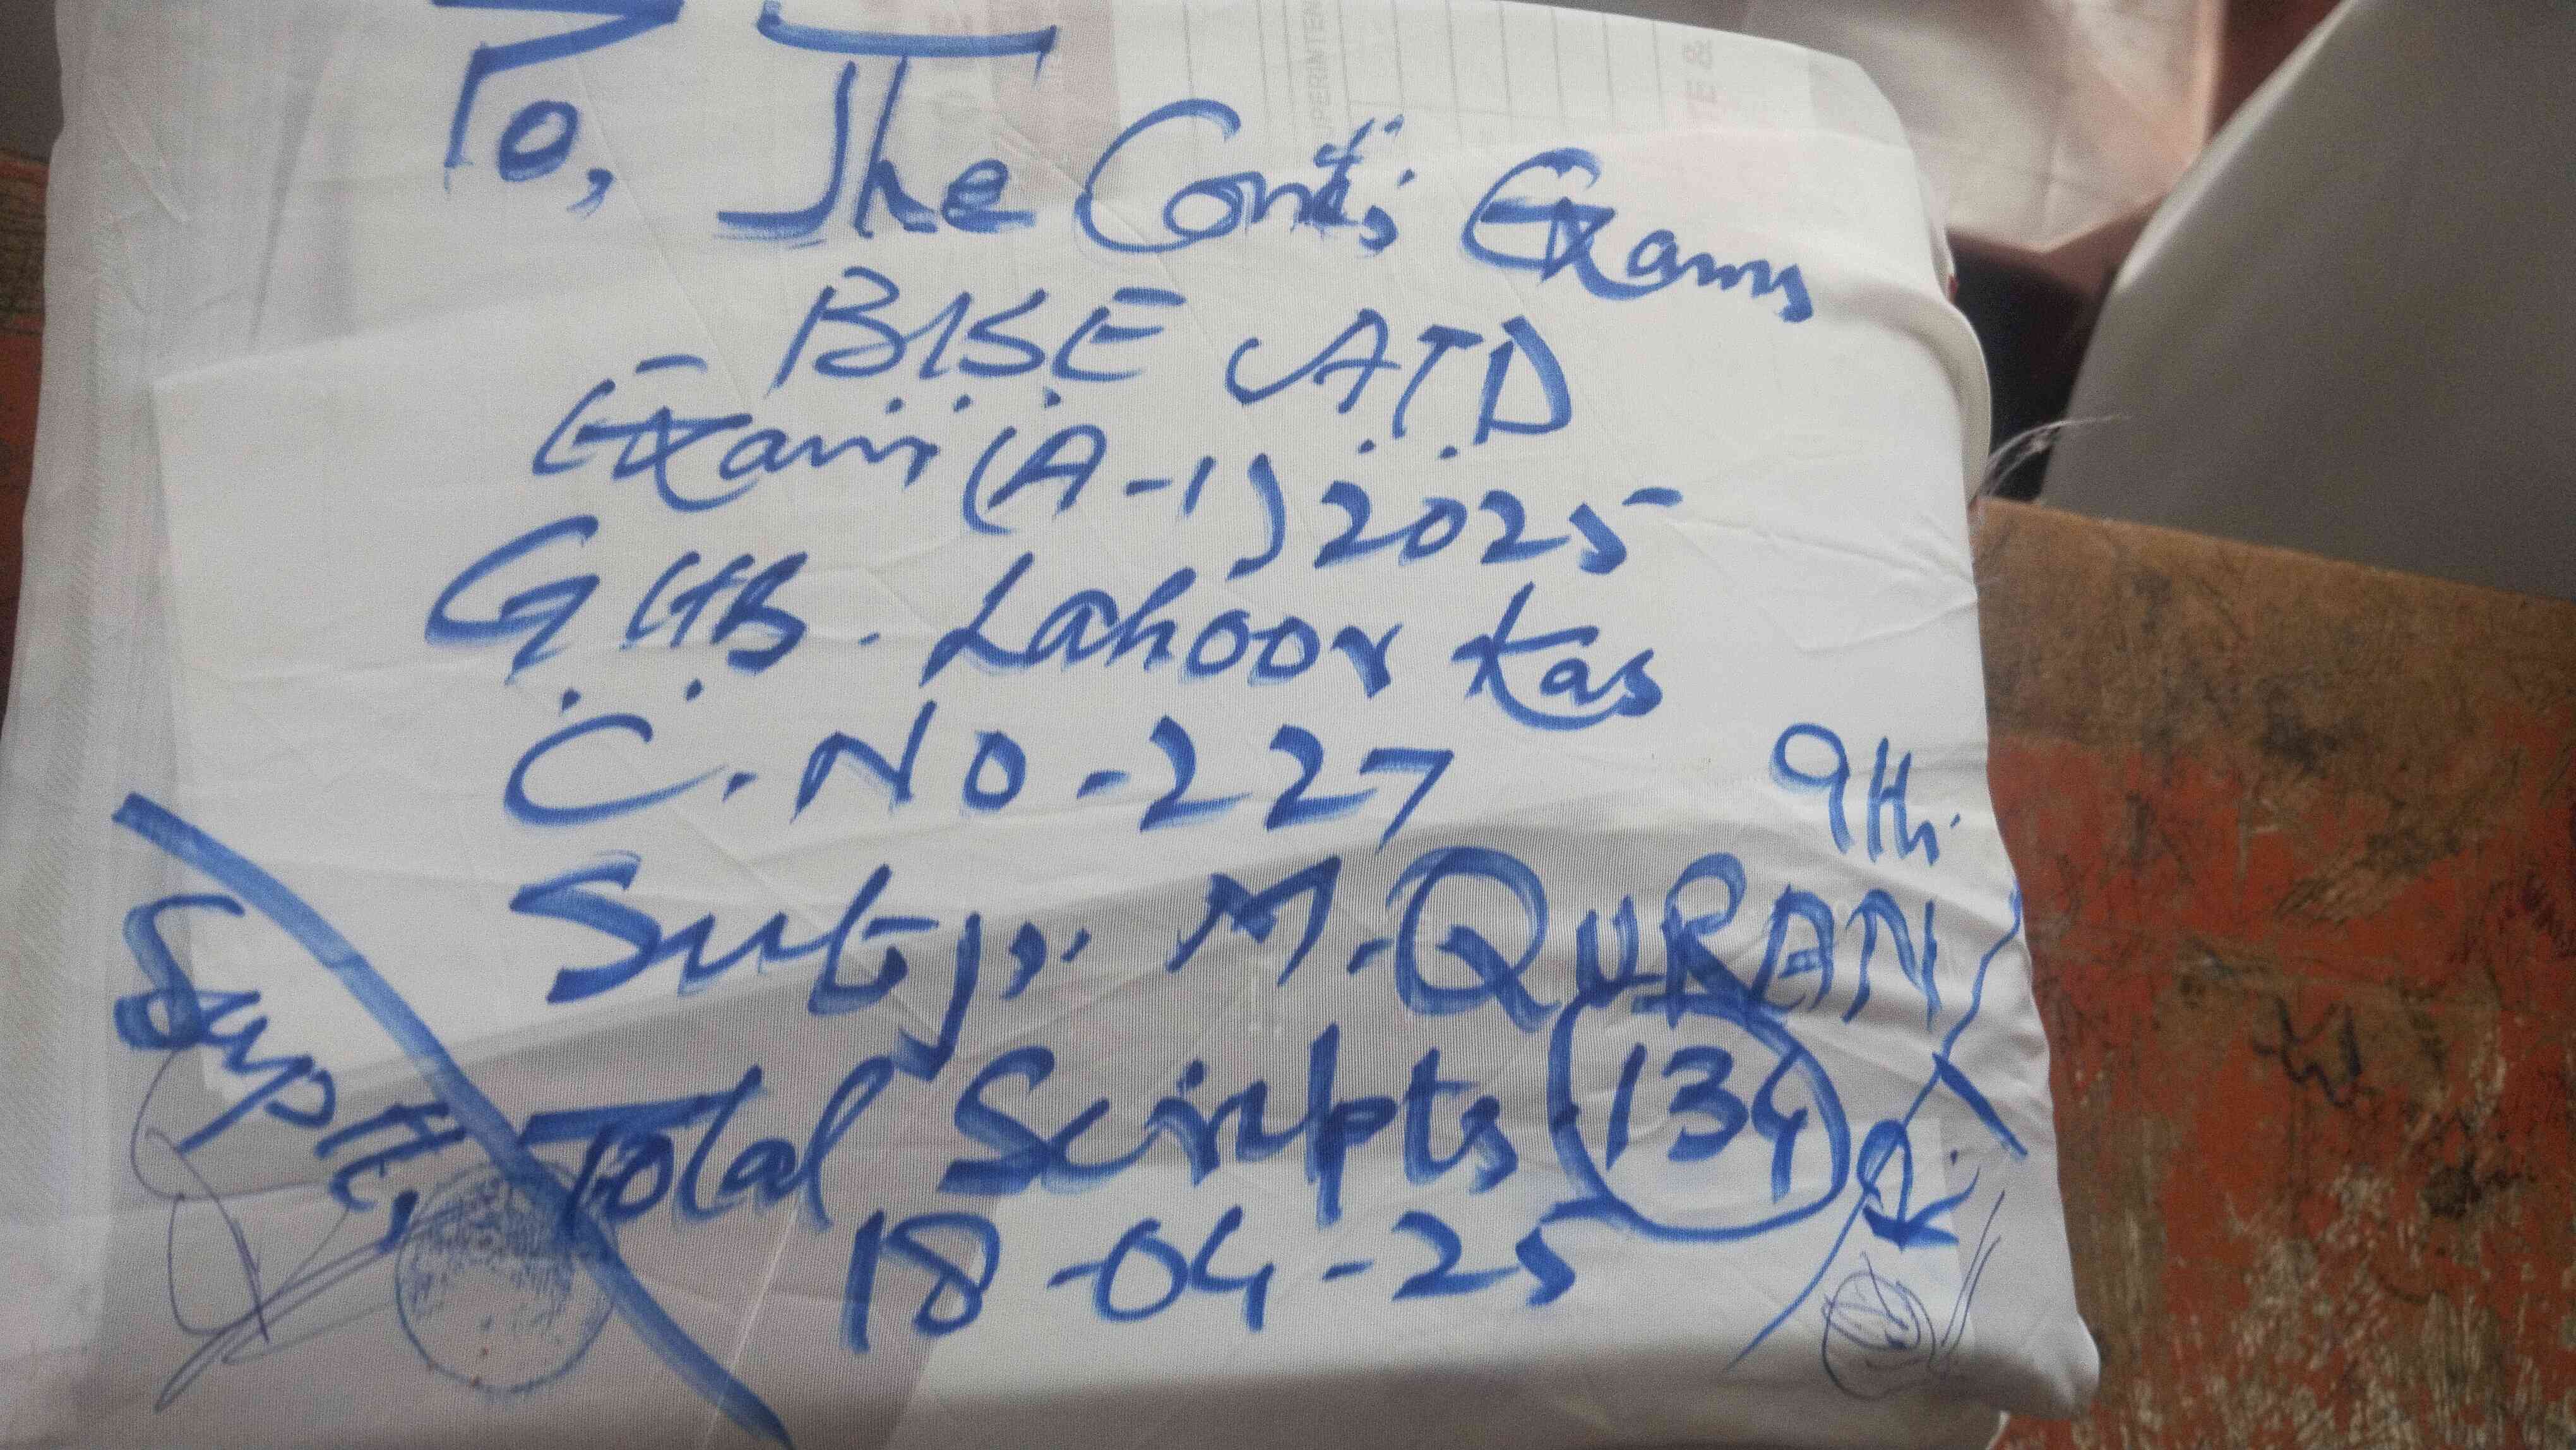 To, The Cont; Exams
BISE ATD
Exam (A-1) 2025
GHS. Lahoor Kas
C. NO-227
9th.
Subj: M. QURAN
Total Scripts 134
18-04-25
Supdt;
PERINTEN
E &